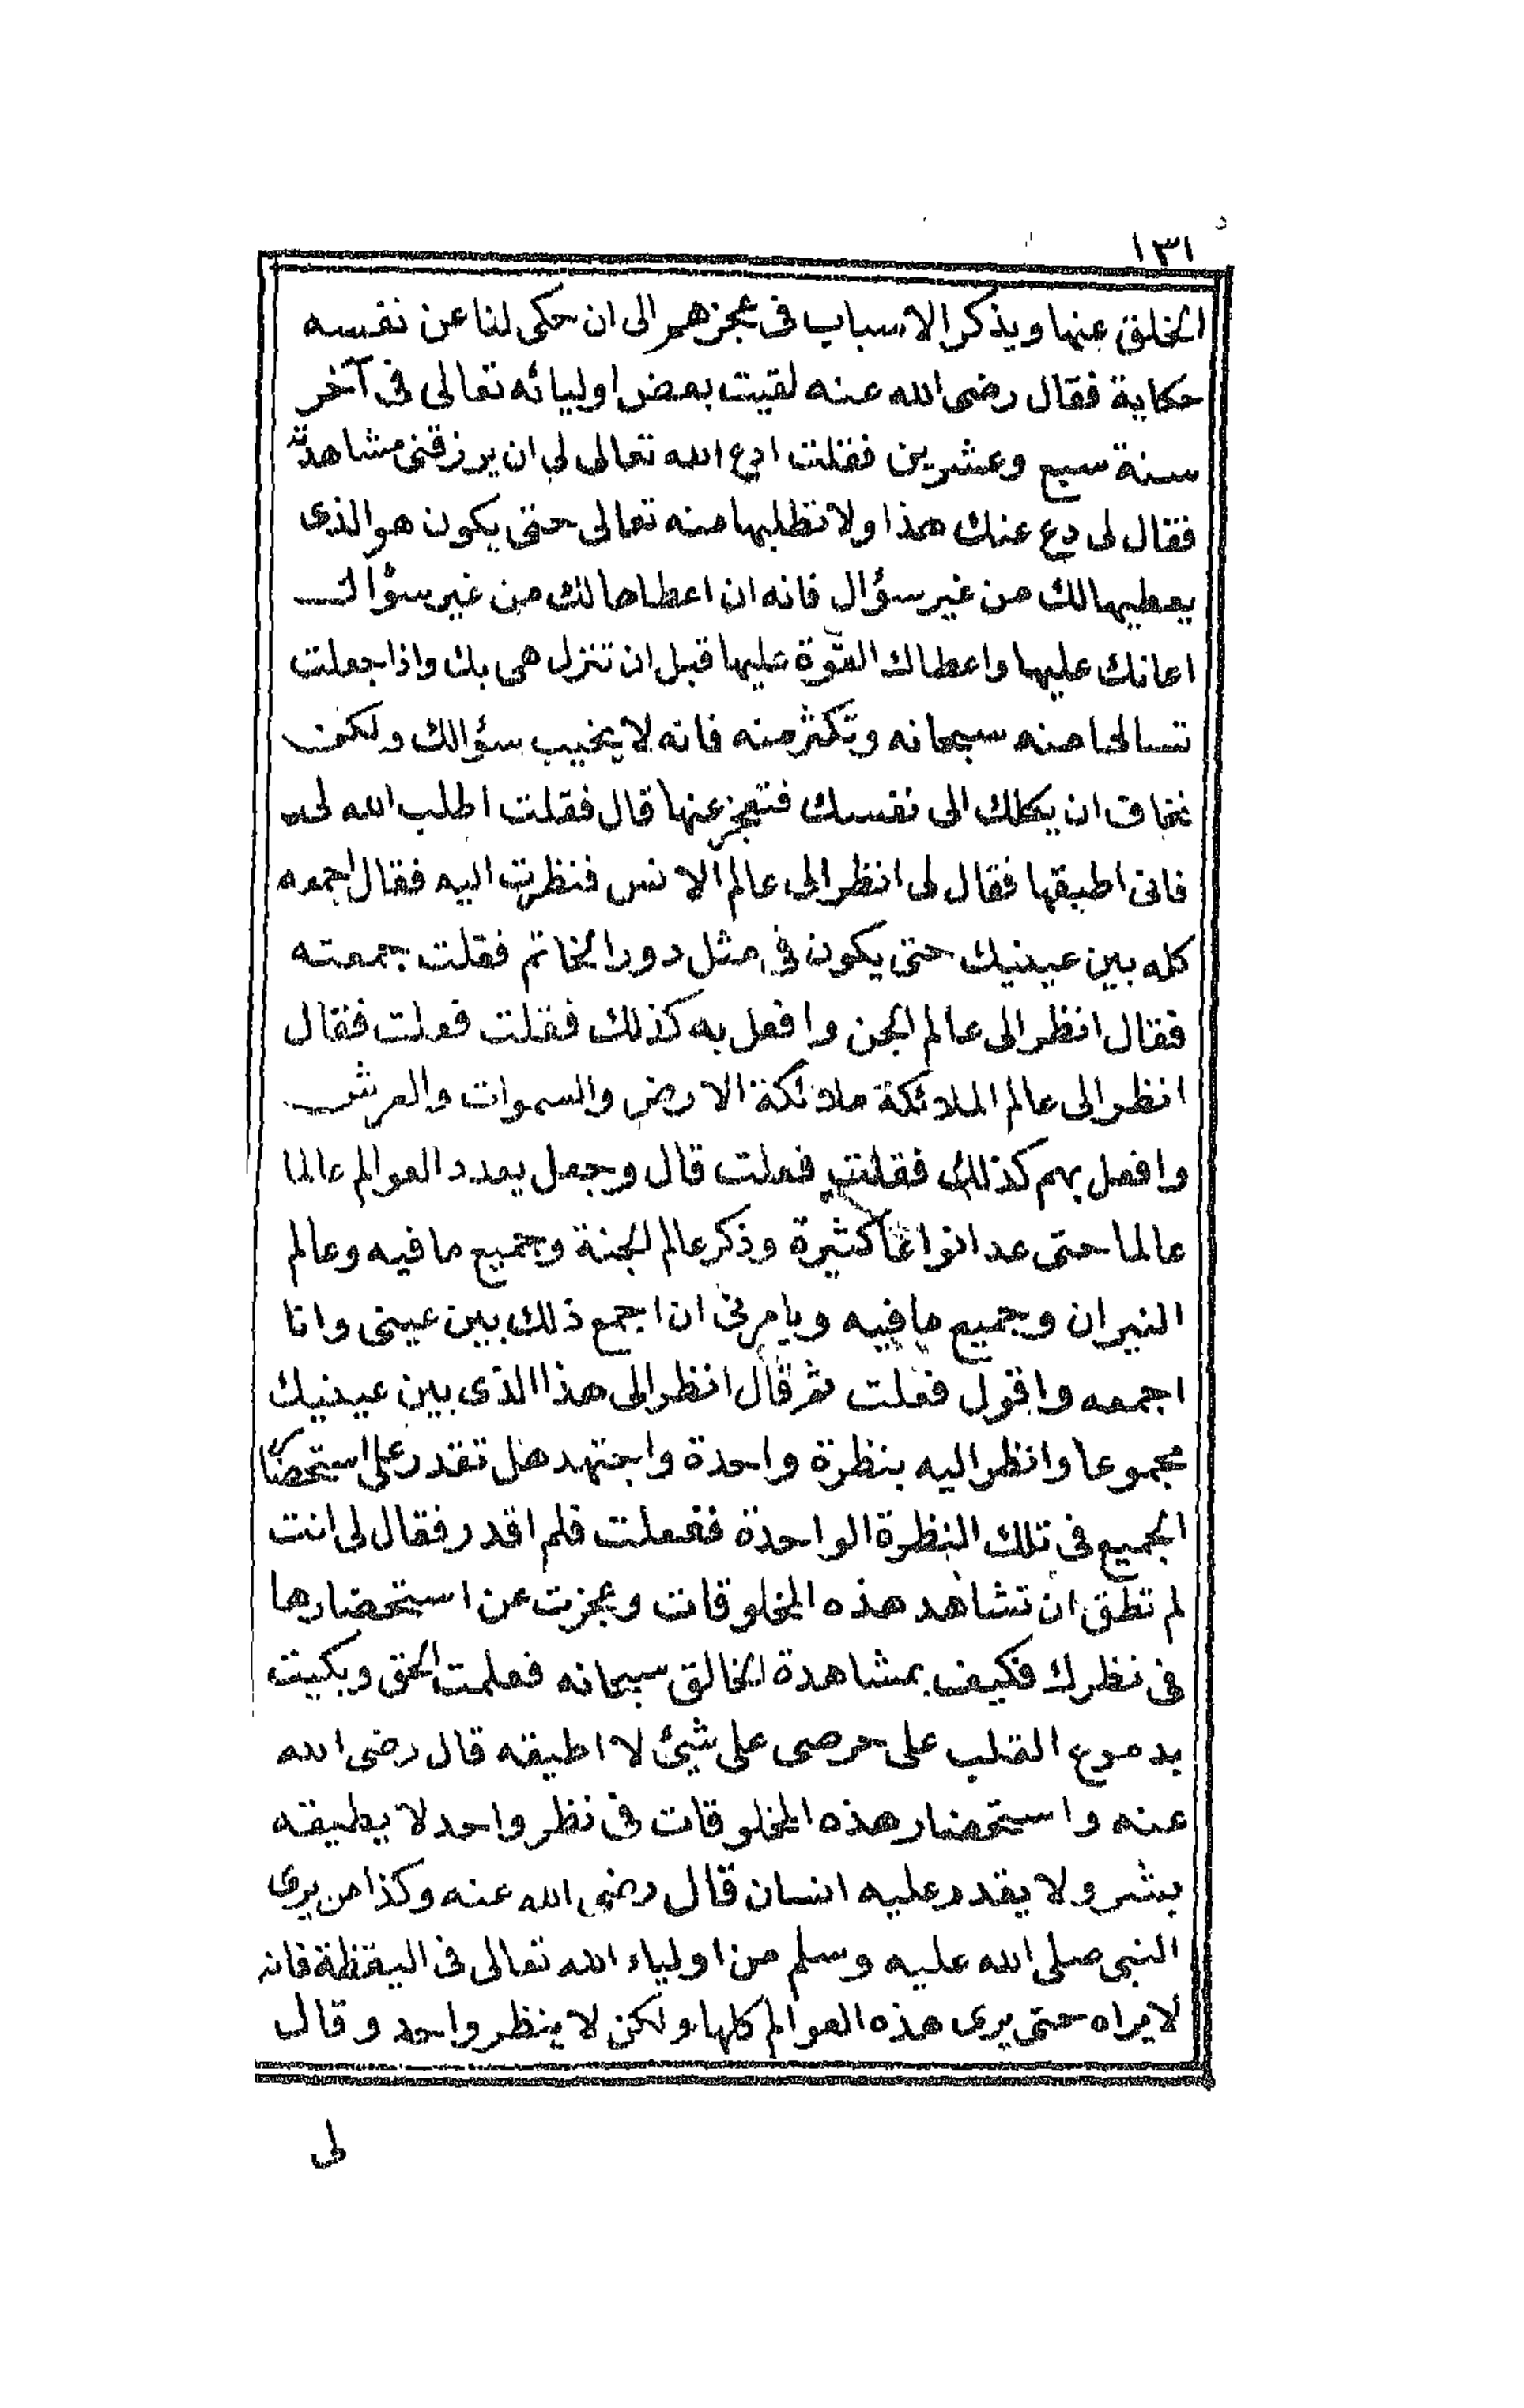 ١٣١
الخلق عنها ويذكر الاسباب فى عجزهم الى ان حكى لنا عن نفسه
حكاية فقال رضى الله عنه لقيت بعض اوليائه تعالى فى آخر
سنة سبع وعشرين فقلت ادع الله تعالى لى ان يرزقنى مشاهدته
فقال لى دع عنك هذا ولا تطلبها منه تعالى حتى يكون هو الذى
يعطيها لك من غير سؤال فانه ان اعطاها لك من غير سؤالك
اعانك عليها واعطاك القوّة عليها قبل ان تنزل هى بك واذا جعلت
تسالها منه سبحانه وتكثر منه فانه لا يخيب سؤالك ولكن
نخاف ان يكلك الى نفسك فتعجز عنها قال فقلت اطلب الله لى
فانى اطيقها فقال لى انظر الى عالم الانس فنظرت اليه فقال اجمعه
كله بين عينيك حتى يكون فى مثل دور الخاتم فقلت جمعته
فقال انظر الى عالم الجن وافعل به كذلك فقلت فعلت فقال
انظر الى عالم الملائكة ملائكة الارض والسموات والعرش
وافعل بهم كذلك فقلت فعلت قال وجعل يعدد العوالم عالما
عالما حتى عد انواعا كثيرة وذكر عالم الجنة وجميع ما فيه وعالم
النيران وجميع ما فيه ويامرنى ان اجمع ذلك بين عينى وانا
اجمعه واقول فعلت ثم قال انظر الى هذا الذى بين عينيك
مجموعا وانظر اليه بنظرة واحدة واجتهد هل تقدر على استحضار
الجميع فى تلك النظرة الواحدة ففعلت فلم اقدر فقال لى انت
لم تطق ان تشاهد هذه المخلوقات وعجزت عن استحضارها
فى نظرك فكيف بمشاهدة الخالق سبحانه فعلمت الحق وبكيت
بدموع القلب على حرصى على شيئ لا اطيقه قال رضى الله
عنه واستحضار هذه المخلوقات فى نظر واحد لا يطيقه
بشر ولا يقدر عليه انسان قال رضى الله عنه وكذا من يرى
النبى صلى الله عليه وسلم من اولياء الله تعالى فى اليقظة فانه
لا يراه حتى يرى هذه العوالم كلها ولكن لا بنظر واحد وقال
لى